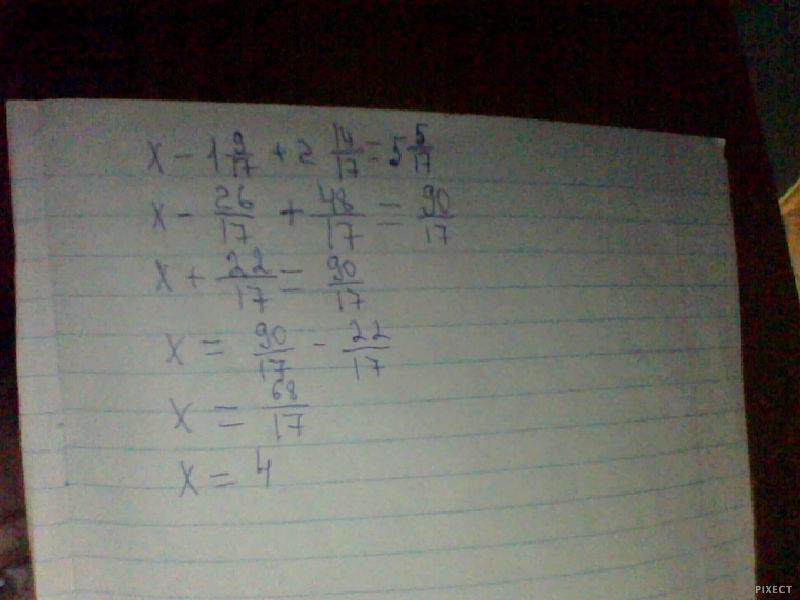 x - 1 9/17 + 2 14/17 = 5 5/17
x - 26/17 + 48/17 = 90/17
x + 22/17 = 90/17
x = 90/17 - 22/17
x = 68/17
x = 4
PIXECT